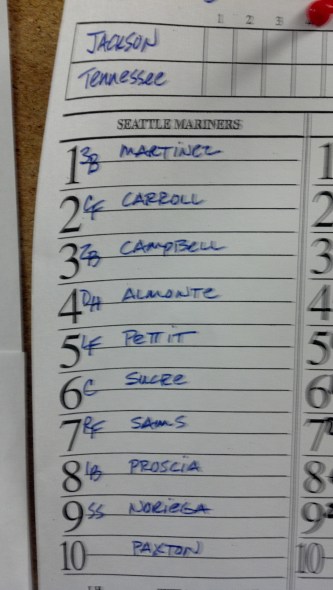 1 2 3
JACKSON
Tennessee
SEATTLE MARINERS
1 3B MARTINEZ 1
2 CF CARROLL 2
3 2B CAMPBELL 3
4 DH ALMONTE 4
5 LF PETTIT 5
6 C SUCRE 6
7 RF SAMS 7
8 1B PROSCIA 8
9 SS NORIEGA 9
10 PAXTON 10